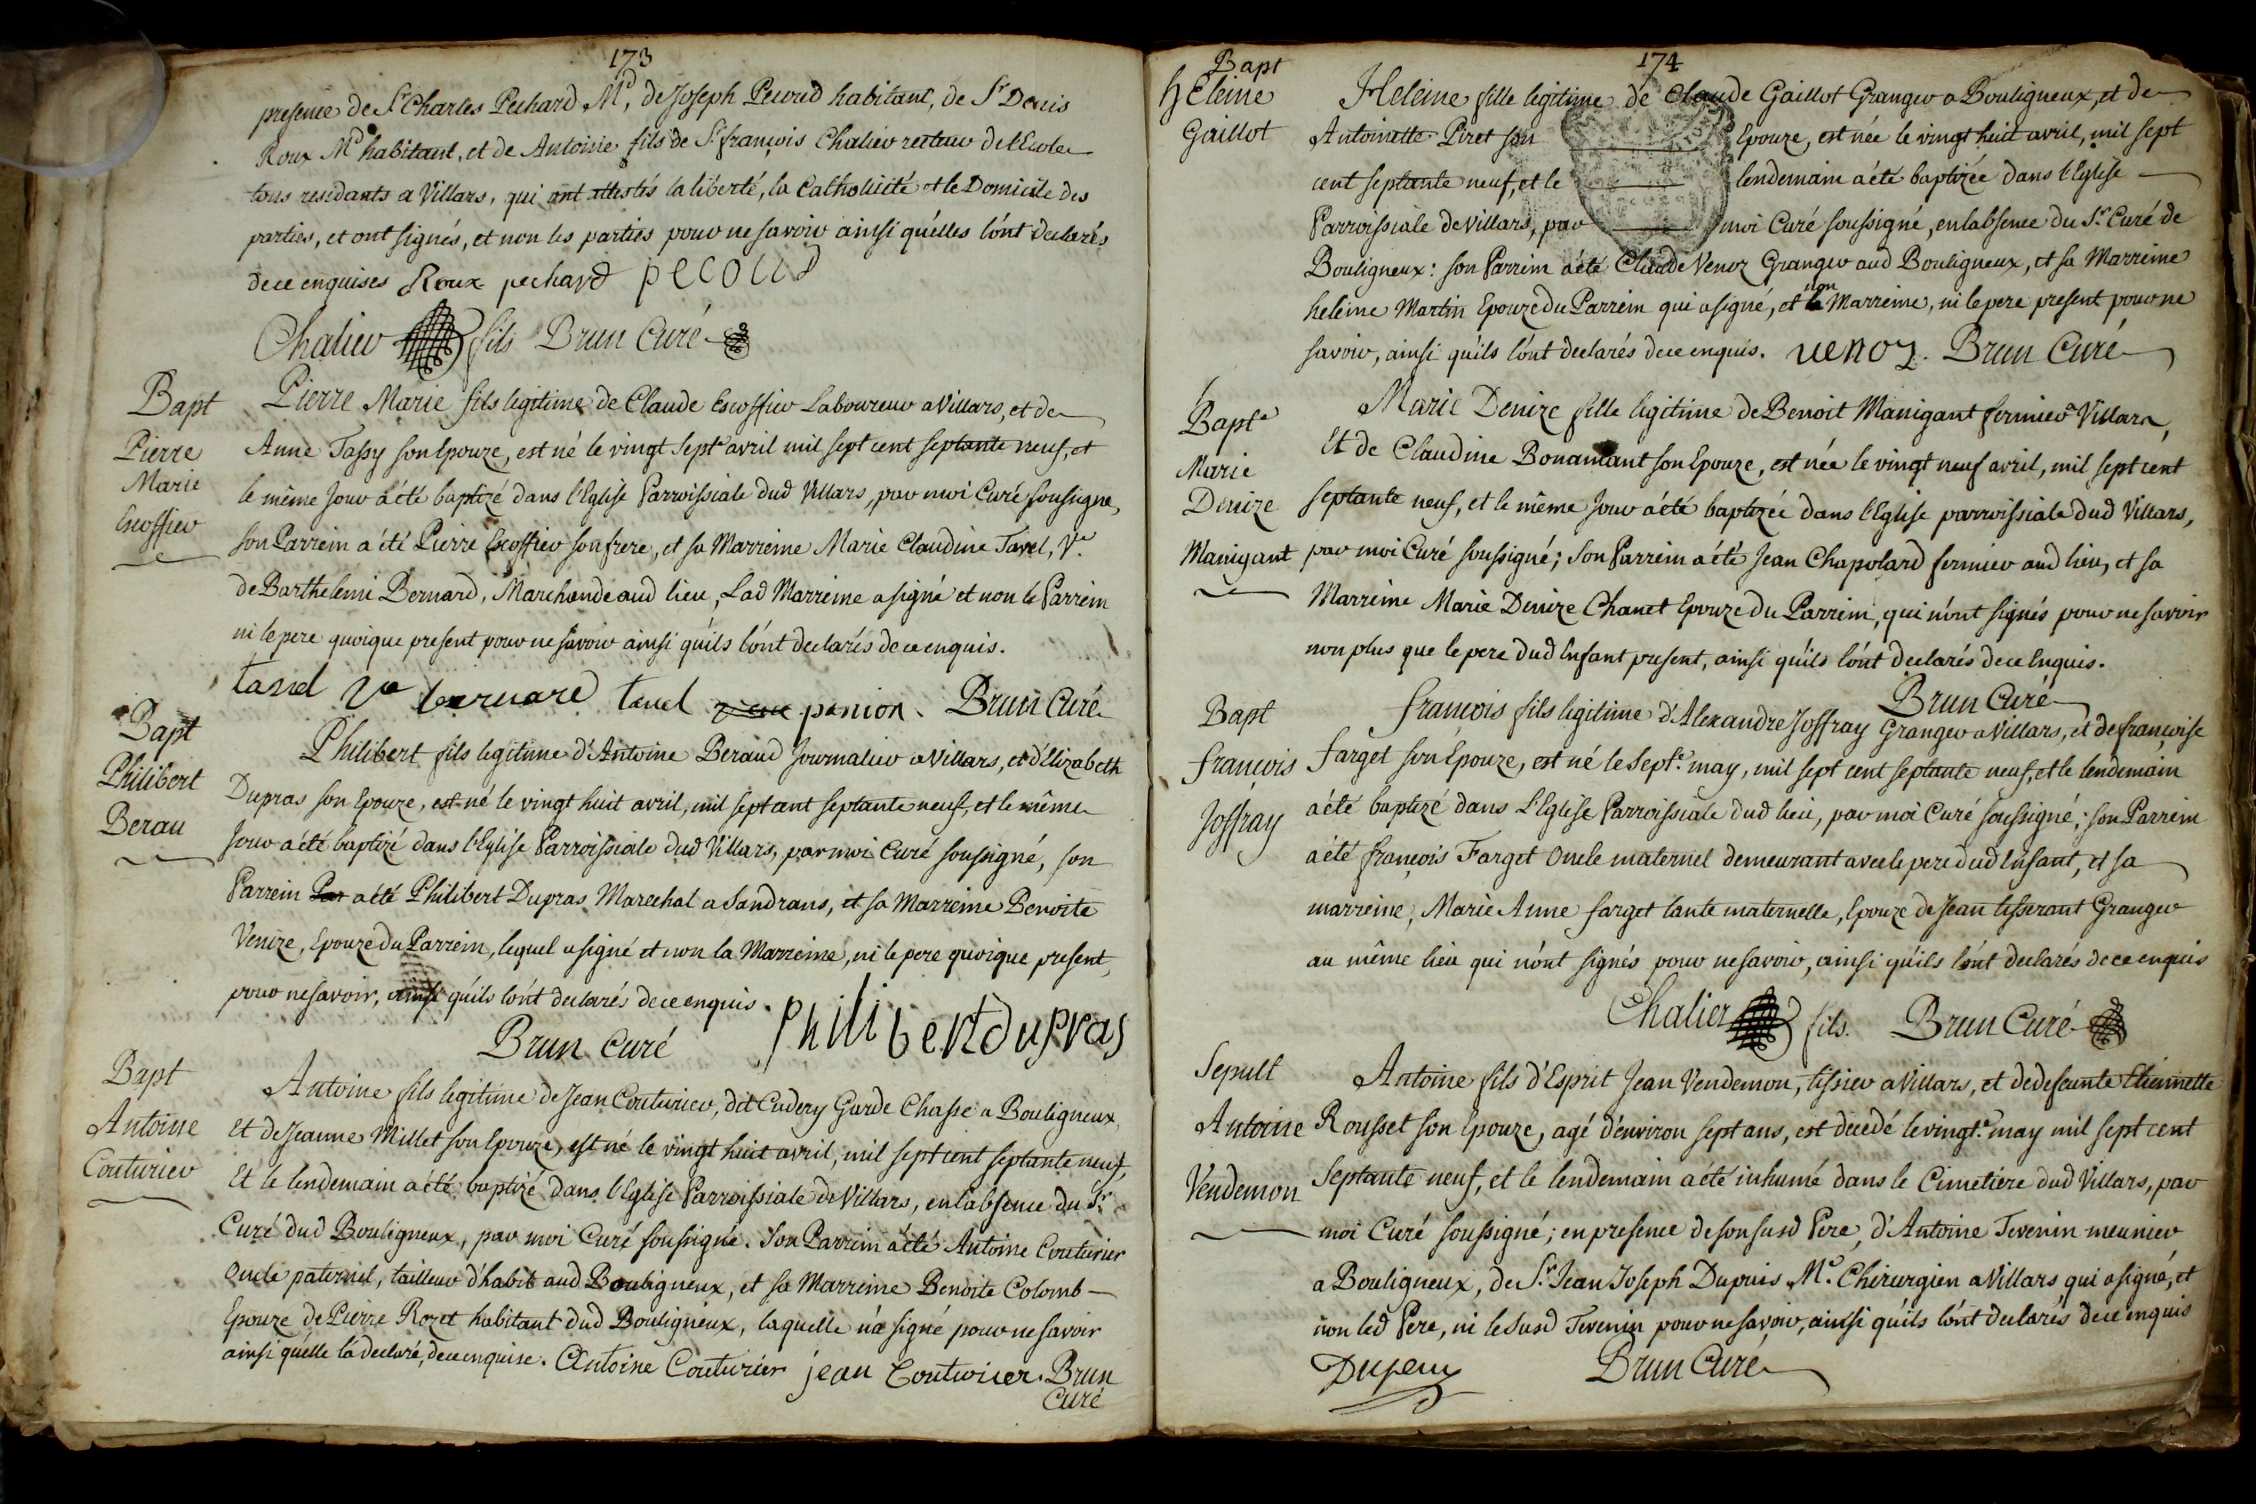 173
presence de Sr Charles Pechard Md, de Joseph Pecoud habitant, de Sr Denis
Roux Md habitant, et de Antoine fils de Sr françois Chalier recteur de l'Ecole
tous residants a Villars, qui ont attestés la liberté, la Catholicité et le Domicile des
parties, et ont signés, et non les parties pour ne savoir ainsi qu'elles l'ont declarés
de ce enquises Roux pechard pecoud
Chalier fils Brun Curé
Bapt
Pierre
Marie
Escoffier
Pierre Marie fils legitime de Claude Escoffier Laboureur a Villars, et de
Anne Tassy son Epouze, est né le vingt sept avril mil sept cent septante neuf, et
le même Jour a été baptizé dans l'Eglise Parroissiale dud Villars, par moi Curé soussigné,
son Parrein a été Pierre Escoffier son frere, et sa Marreine Marie Claudine Tavel, Ve
de Barthelemi Bernard, Marchande aud lieu, Lad Marreine a signé et non le Parrein
ni le pere quoique present pour ne savoir ainsi qu'ils l'ont declarés de ce enquis.
tavel ve bernard tavel panion. Brun Curé
Bapt
Philibert
Berau
Philibert fils legitime d'Antoine Beraud Journalier a Villars, et d'Elizabeth
Dupras son Epouze, est né le vingt huit avril, mil sept cent septante neuf, et le même
Jour a été baptizé dans l'Eglise Parroissiale dud Villars, par moi Curé soussigné, son
Parrein Par a été Philibert Dupras Marechal a Sandrans, et sa Marreine Benoite
Venize, Epouze du Parrein, lequel a signé et non la Marreine, ni le pere quoique present,
pour ne savoir, ainsi qu'ils l'ont declarés de ce enquis. philibert dupras
Brun Curé
Bapt
Antoine
Couturier
Antoine fils legitime de Jean Couturier, dit Cudery Garde Chasse a Bouligneux,
et de Jeanne Millet son Epouze, est né le vingt huit avril, mil sept cent septante neuf,
Et le lendemain a été baptizé dans l'Eglise Parroissiale de Villars, en labsence du Sr
Curé dud Bouligneux, par moi Curé soussigné. Son Parrein a été Antoine Couturier
Oncle paternel, tailleur d'habit aud Bouligneux, et sa Marreine Benoite Colomb
Epouze de Pierre Rozet habitant dud Bouligneux, laquelle n'a signé pour ne savoir
ainsi qu'elle l'a declaré, de ce enquise. Antoine Couturier jean Couturier. Brun
Curé
174
Bapt
hEleine
Gaillot
Heleine fille legitime de Claude Gaillot Granger a Bouligneux, et de
Antoinette Piret son Epouze, est née le vingt huit avril, mil sept
cent septante neuf, et le lendemain a été baptizée dans l'Eglise
Parroissiale de Villars, par moi Curé soussigné, en labsence du Sr Curé de
Bouligneux: son Parrein a été Claude Venoz Granger aud Bouligneux, et sa Marreine
heleine Martin Epouze du Parrein qui a signé, et non la Marreine, ni le pere present pour ne
savoir, ainsi qu'ils l'ont declarés de ce enquis. venoz. Brun Curé
Bapte
Marie
Denize
Manigant
Marie Denize fille legitime de Benoit Manigant fermier a Villars,
Et de Claudine Bonamant son Epouze, est née le vingt neuf avril, mil sept cent
septante neuf, et le même Jour a été baptizée dans l'Eglise parroissiale dud Villars,
par moi Curé soussigné; son Parrein a été Jean Chapolard fermier aud lieu, et sa
Marreine Marie Denize Chanet Epouze du Parrein, qui n'ont signés pour ne savoir
non plus que le pere dud Enfant present, ainsi qu'ils l'ont declarés de ce Enquis.
Brun Curé
Bapt
francois
Joffray
francois fils legitime d'Alexandre Joffray Granger a Villars, et de françoise
farget son Epouze, est né le sept may, mil sept cent septante neuf, et le lendemain
a été baptizé dans L'Eglise Parroissiale dud lieu, par moi Curé soussigné; son Parrein
a été françois Farget Oncle maternel demeurant avec le pere dud Enfant, et sa
marreine, Marie Anne farget tante maternelle, Epouze de Jean tisserant Granger
au même lieu qui n'ont signés pour ne savoir, ainsi qu'ils l'ont declarés de ce enquis
Chalier fils. Brun Curé
Sepult
Antoine
Vendemon
Antoine fils d'Esprit Jean Vendemon, tissier a Villars, et de defeunte Etiennette
Rousset son Epouze, agé d'environ sept ans, est decedé le vingt may mil sept cent
Septante neuf, et le lendemain a été inhumé dans le Cimetiere dud Villars, par
moi Curé soussigné; en presence de son susd Pere, d'Antoine Tevenin meunier
a Bouligneux, de Sr Jean Joseph Dupuis Me Chirurgien a Villars, qui a signé, et
non led Pere, ni le susd Tevenin pour ne savoir, ainsi qu'ils l'ont declarés de ce enquis
Brun Curé